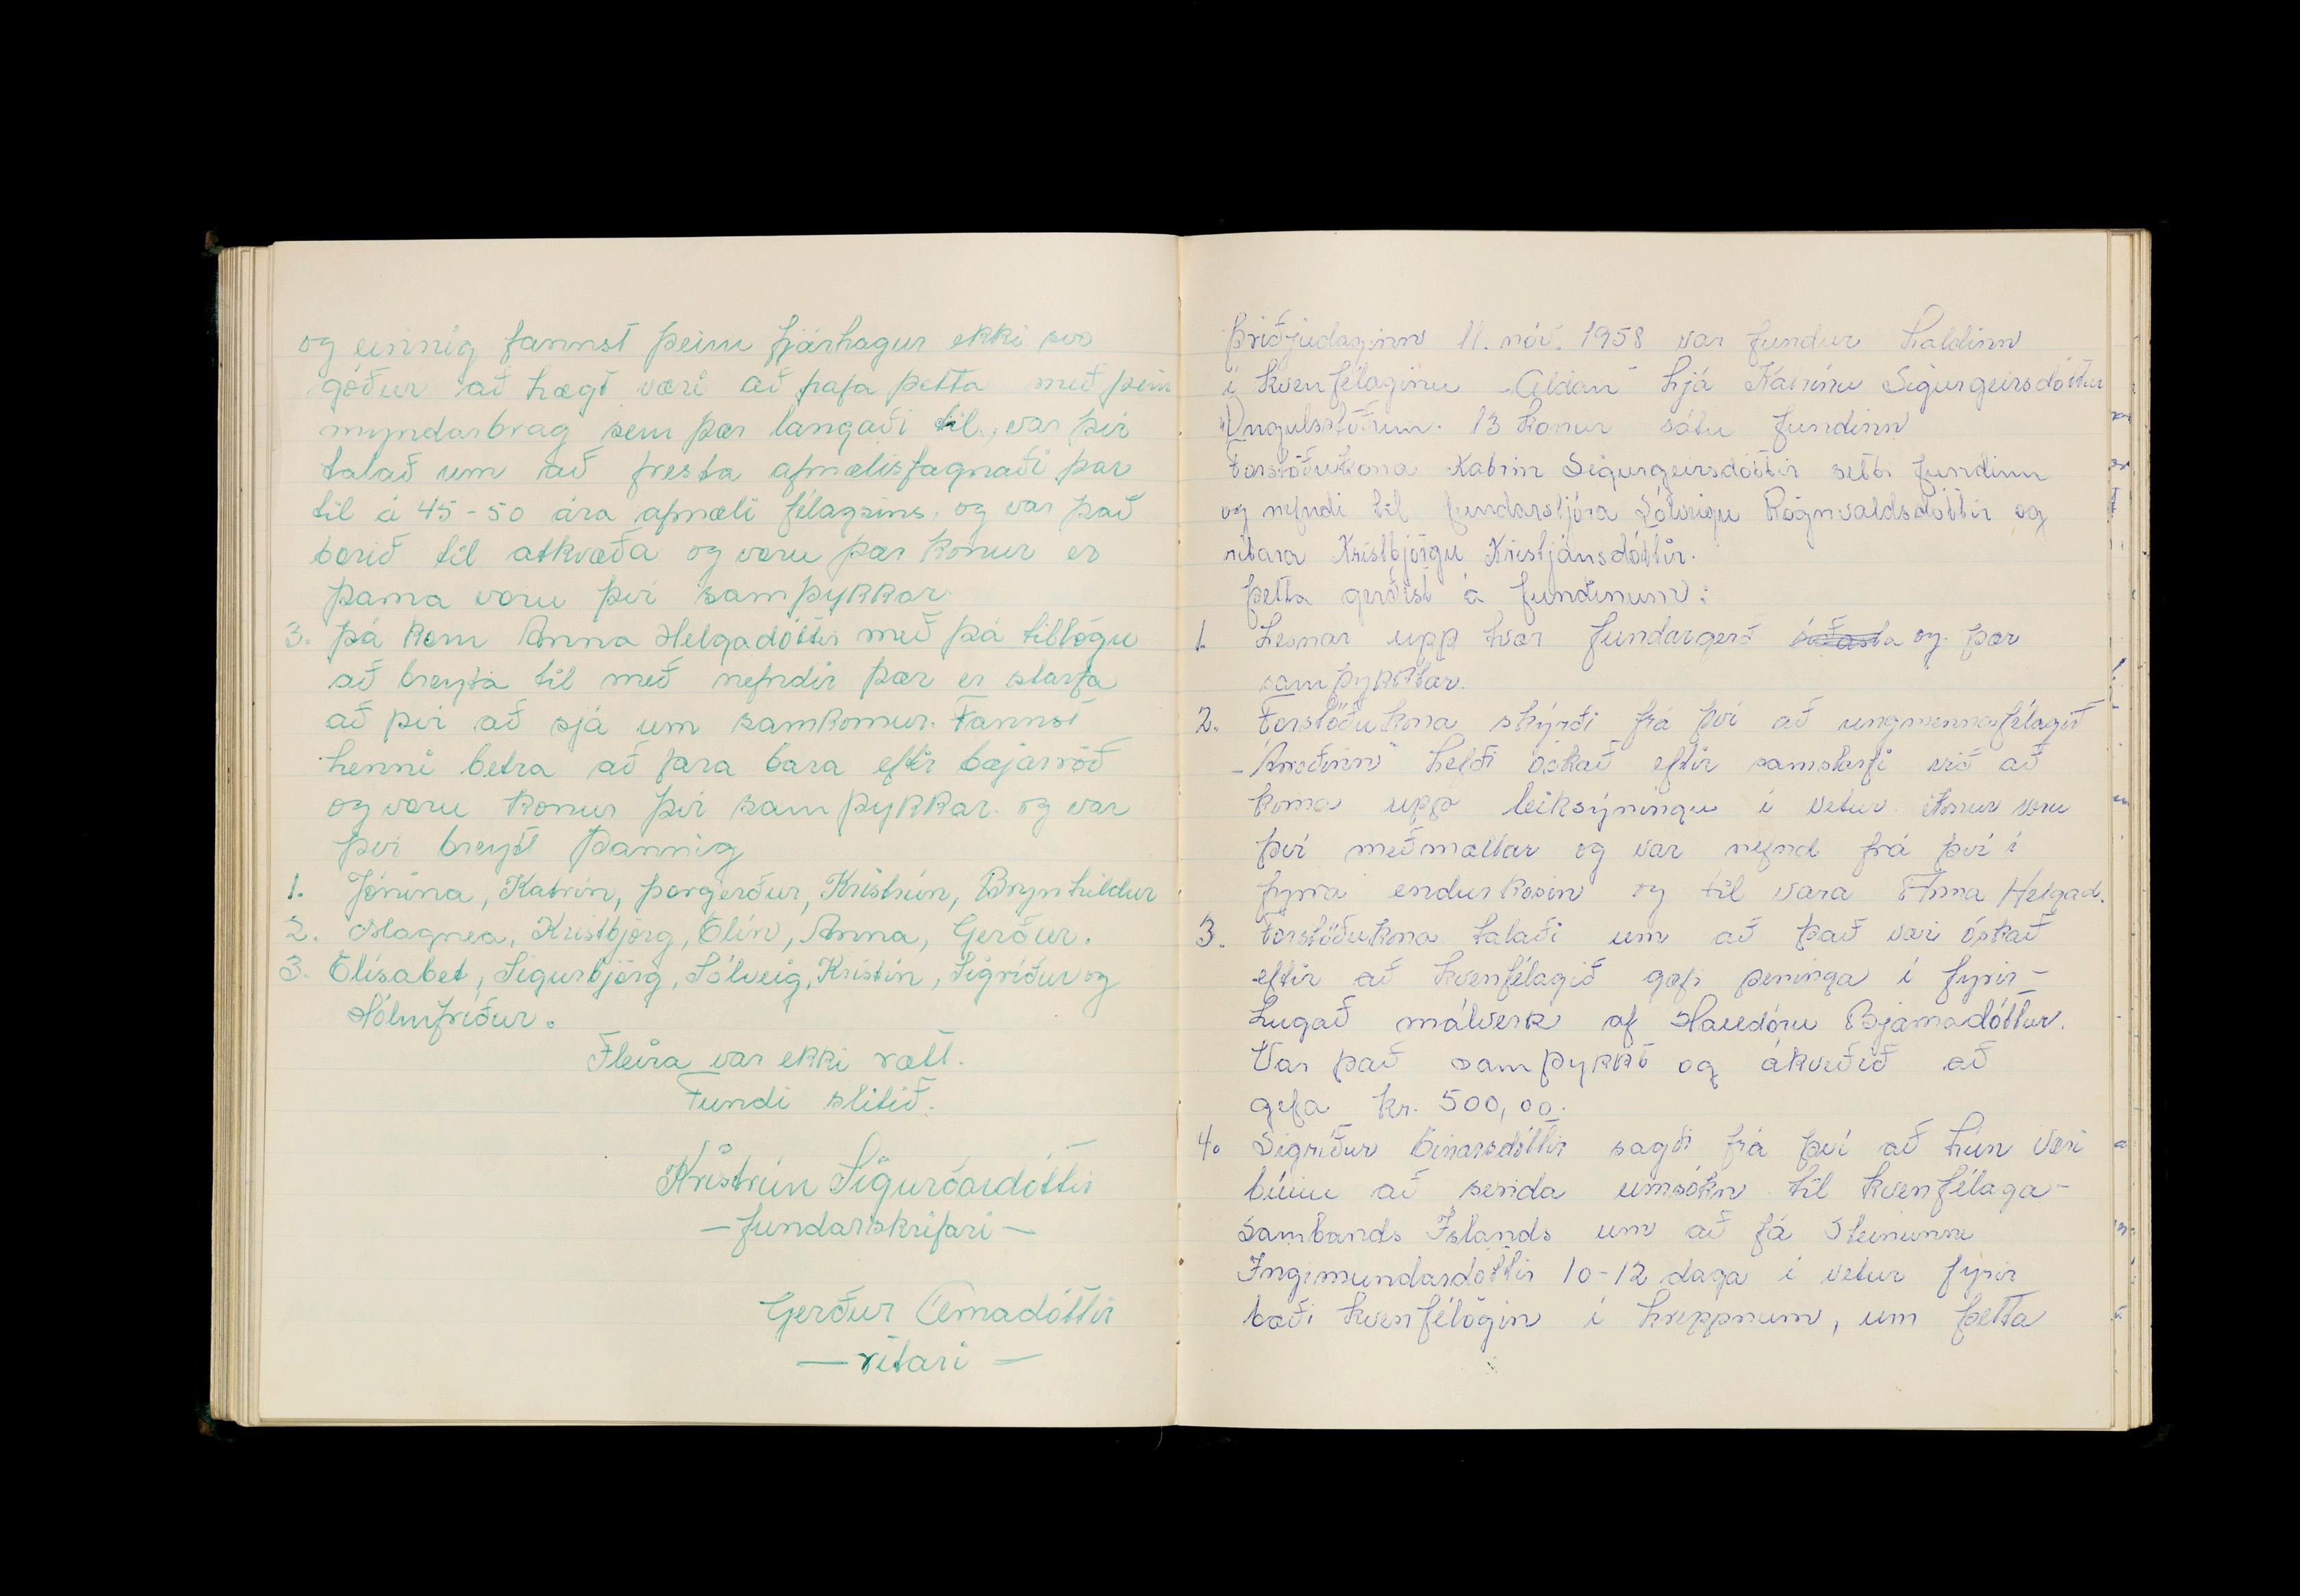 og einnig fannst þeim fjárhagur ekki svo
góður að hægt væri að hafa þetta með þeim
myndarbrag sem þær langaði til, var því
talað um að fresta afmælisfagnaði þar
til á 45-50 ára afmæli félagsins, og var það
borið til atkvæða og voru þær konur er
þarna voru því samþykkar.
3. Þá kom Anna Helgadóttir með þá tillögu
að breyta til með nefndir þær er starfa
að því að sjá um samkomur. Fannst
henni betra að fara bara eftir bæjarröð
og voru konur því samþykkar. og var
því breytt þannig
1. Jónína, Katrín, Þorgerður, Kristrún, Brynhildur
2. Magnea, Kristbjörg, Elín, Anna, Gerður.
3. Elísabet, Sigurbjörg, Sólveig, Kristín, Sigríður og
Hólmfríður.
Fleira var ekki rætt.
Fundi slitið.
Kristrún Sigurðardóttir
- fundarskrifari -
Gerður Árnadóttir
- ritari -
Þriðjudaginn 11. nóv. 1958 var fundur haldinn
í kvenfélaginu „Aldan" hjá Katrínu Sigurgeirsdóttur
Öngulsstöðum. 13 konur sátu fundinn
Forstöðukona Katrín Sigurgeirsdóttir setti fundinn
og nefndi til fundarstjóra Sólveigu Rögnvaldsdóttir og
ritara Kristbjörgu Kristjánsdóttir.
Þetta gerðist á fundinum:
1. Lesnar upp tvær fundargerð síðasta og þær
samþykktar.
2. Forstöðukona skýrði frá því að ungmennafélagið
„Árroðinn" hefði óskað eftir samstarfi við að
koma upp leiksýningu í vetur. Konur voru
því meðmæltar og var nefnd frá því í
fyrra endurkosin og til vara Anna Helgad.
3. Forstöðukona talaði um að það væri óskað
eftir að kvenfélagið gæfi peninga í fyrir-
hugað málverk af Halldóru Bjarnadóttur.
Var það samþykkt og ákveðið að
gefa kr. 500,00.
4. Sigríður Einarsdóttir sagði frá því að hún væri
búinn að senda umsókn til kvenfélaga-
sambands Íslands um að fá Steinunni
Ingimundardóttir 10-12 daga í vetur fyrir
bæði kvenfélögin í hreppnum, um þetta